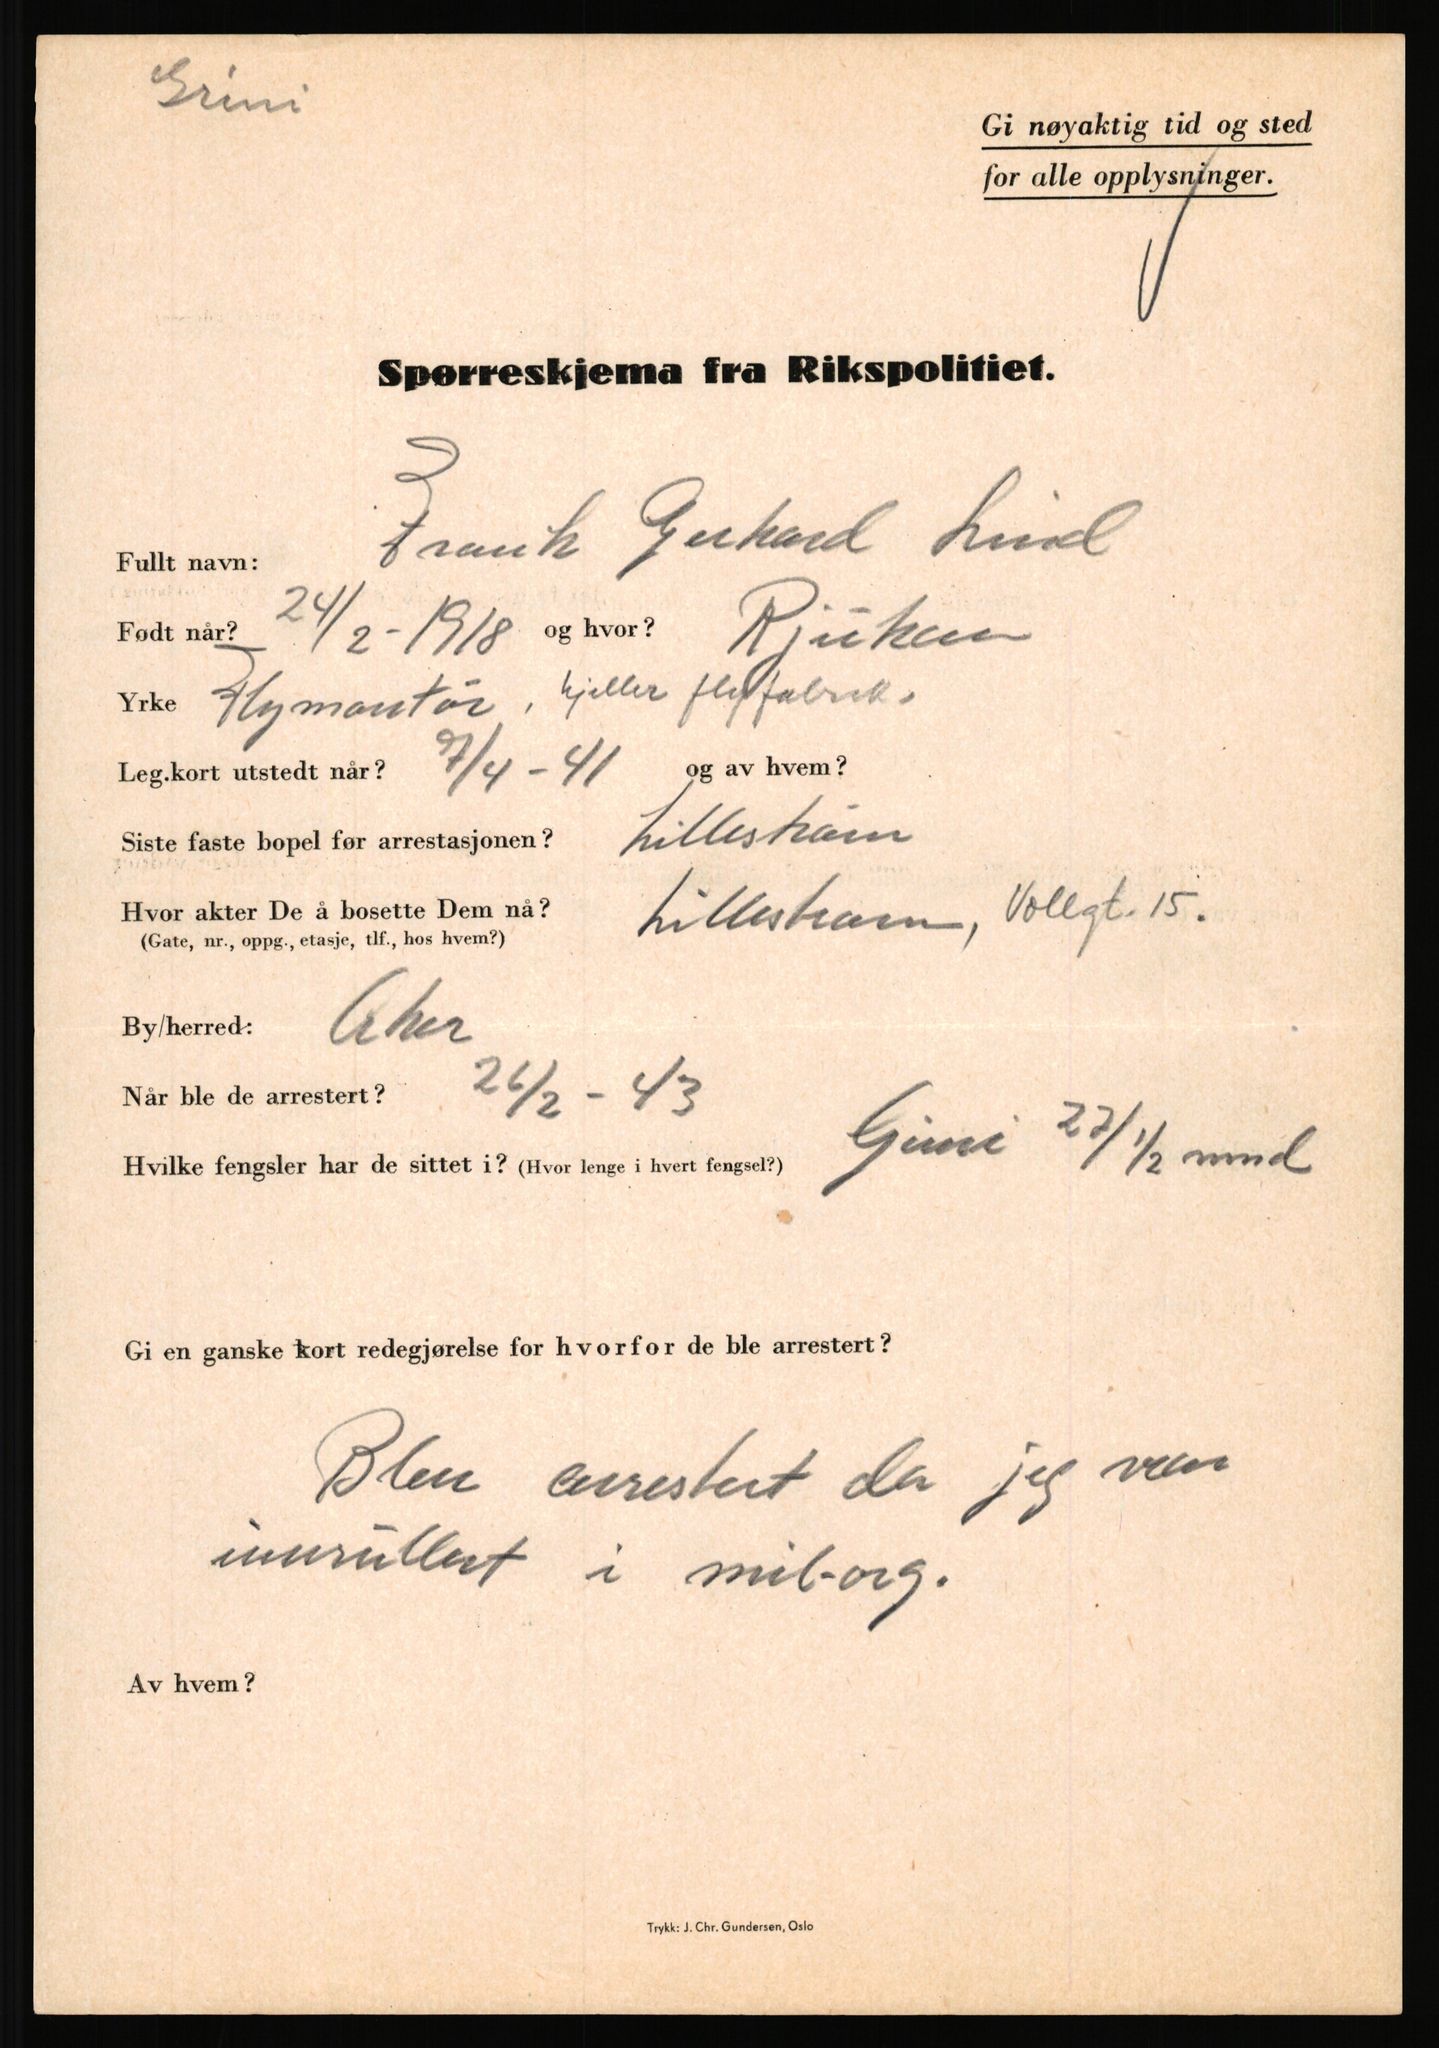 Grini
Gi nøyaktig tid og sted
for alle opplysninger.
Spørreskjema fra Rikspolitiet.
Fullt navn: Frank Gerhard Lind
Født når? 24/2-1918 og hvor? Rjukan
Yrke Flymontör, Kjeller flyfabrik.
Leg.kort utstedt når? 7/4-41 og av hvem?
Siste faste bopel før arrestasjonen? Lilleström
Hvor akter De å bosette Dem nå? Lillestrøm, Vollgt. 15.
(Gate, nr., oppg., etasje, tlf., hos hvem?)
By/herred: Aker
Når ble de arrestert? 26/2-43
Hvilke fengsler har de sittet i? (Hvor lenge i hvert fengsel?) Grini 27/1/2 mnd
Gi en ganske kort redegjørelse for hvorfor de ble arrestert?
Blev arrestert da jeg var
innrullert i mil-org.
Av hvem?
Trykk: J. Chr. Gundersen, Oslo